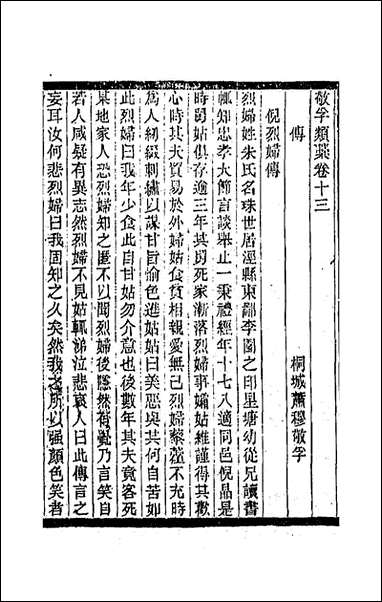 敬孚類藁卷十三
桐城蕭穆敬孚
傳
倪烈婦傳
烈婦姓朱氏名珠世居涇縣東鄙李園之印星塘幼從兄讀書
輒知忠孝大節言談舉止一秉禮經年十七八適同邑倪晶是
時舅姑俱存逾三年其舅死家漸落烈婦事孀姑維謹得其歡
心時其夫貿易於外婦姑食貧相親愛無已烈婦藜藿不充時
爲人紉綴刺繡以謀甘旨愉色進姑姑曰美惡與其何自苦如
此烈婦曰我年少食此自甘姑勿介意也後數年其夫竟客死
某地家人恐烈婦知之匿不以聞烈婦後隱然有乃言笑自
若人咸疑有異志然烈婦不見姑輒涕泣悲哀人曰此傳言之
妄耳汝何悲烈婦曰我固知之久矣然我之所以强顏色笑者